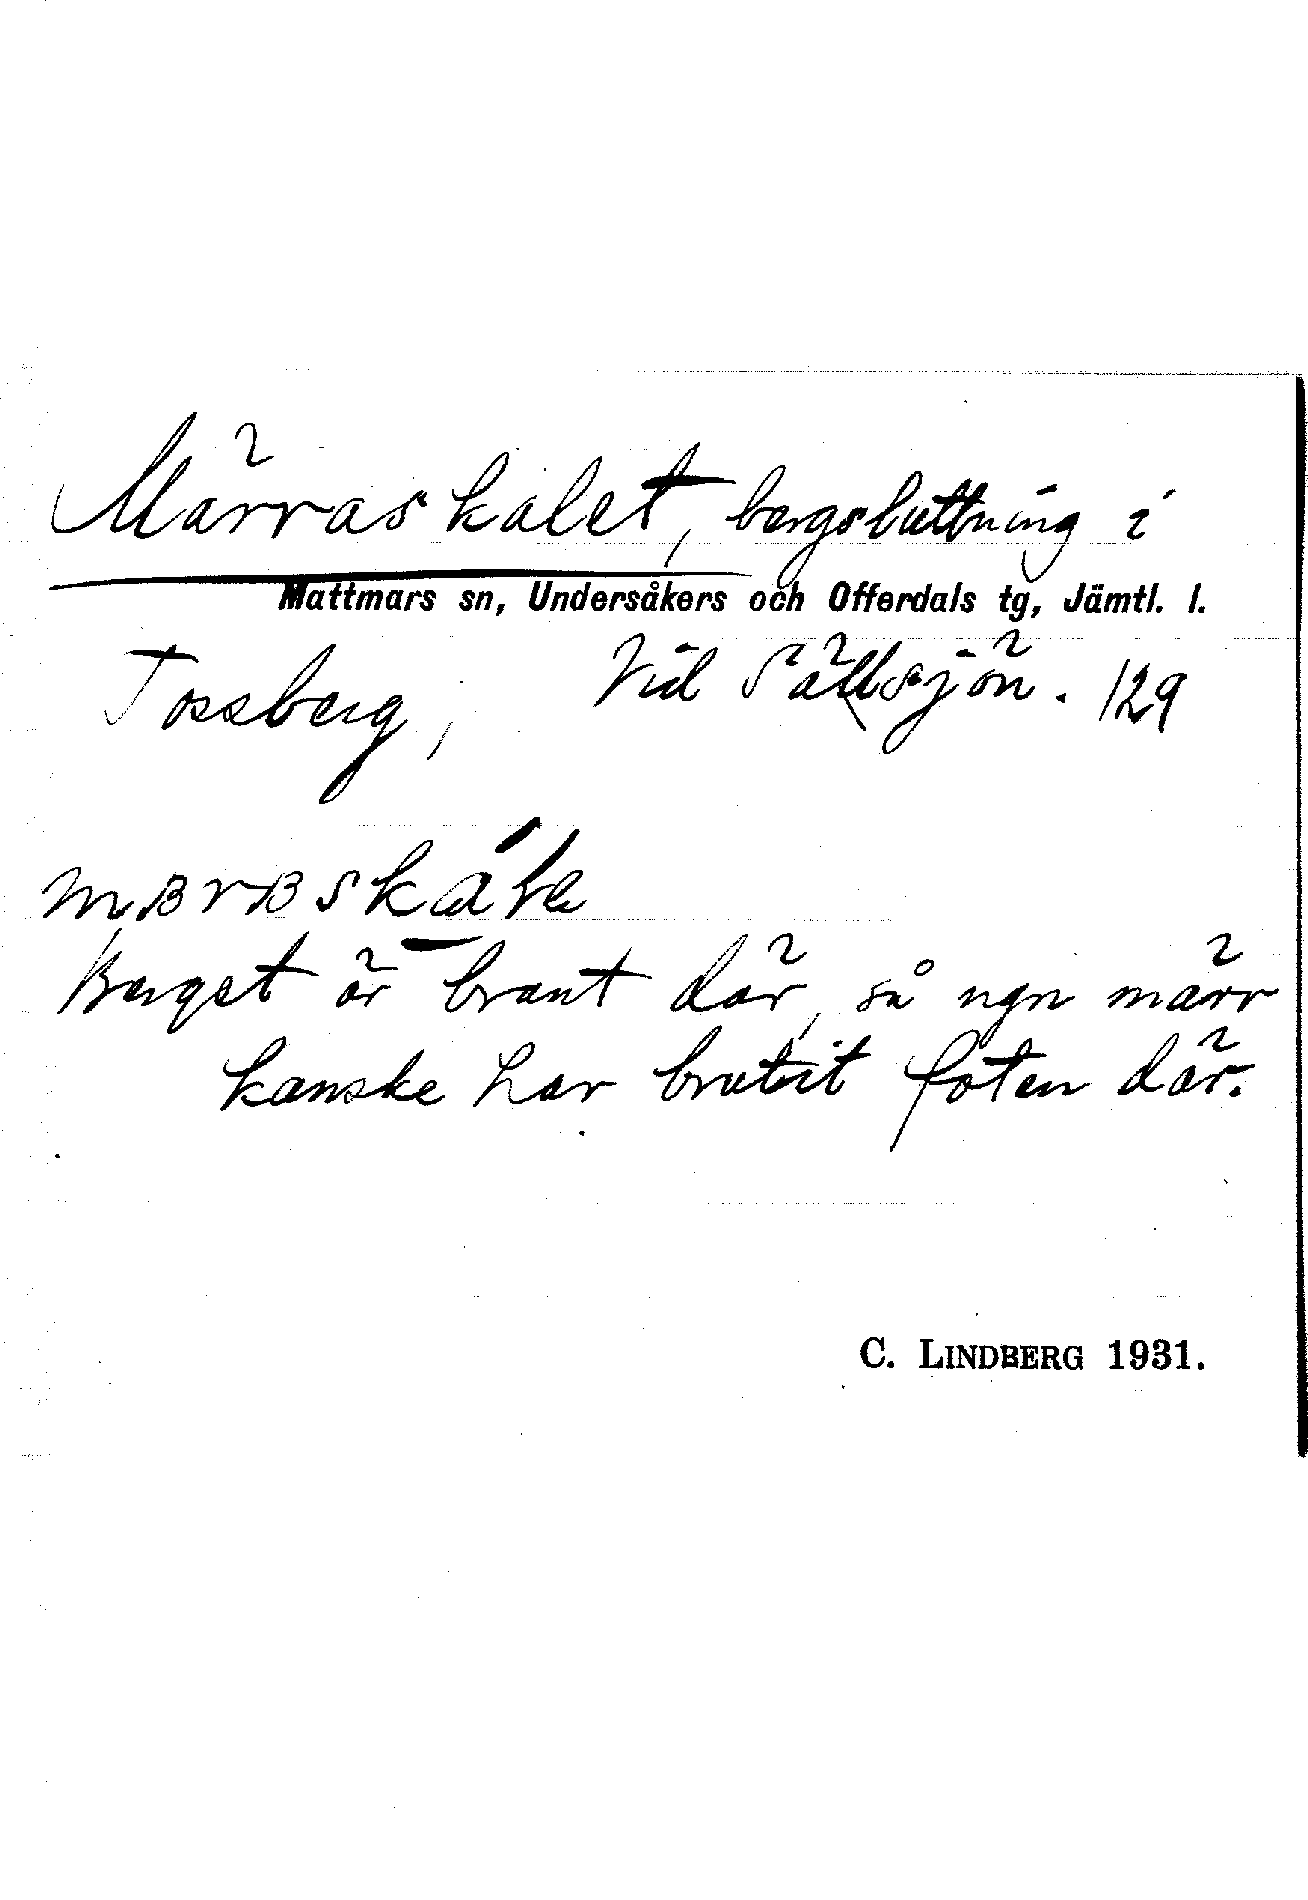 Märraskalet, bergsluttning i
Mattmars sn, Undersåkers och Offerdals tg, Jämtl. l.
Tossberg, Vid Sällsjön. 129
Berget är brant där, så ngn märr
kanske har brutit foten där.
C. LINDBERG 1931.